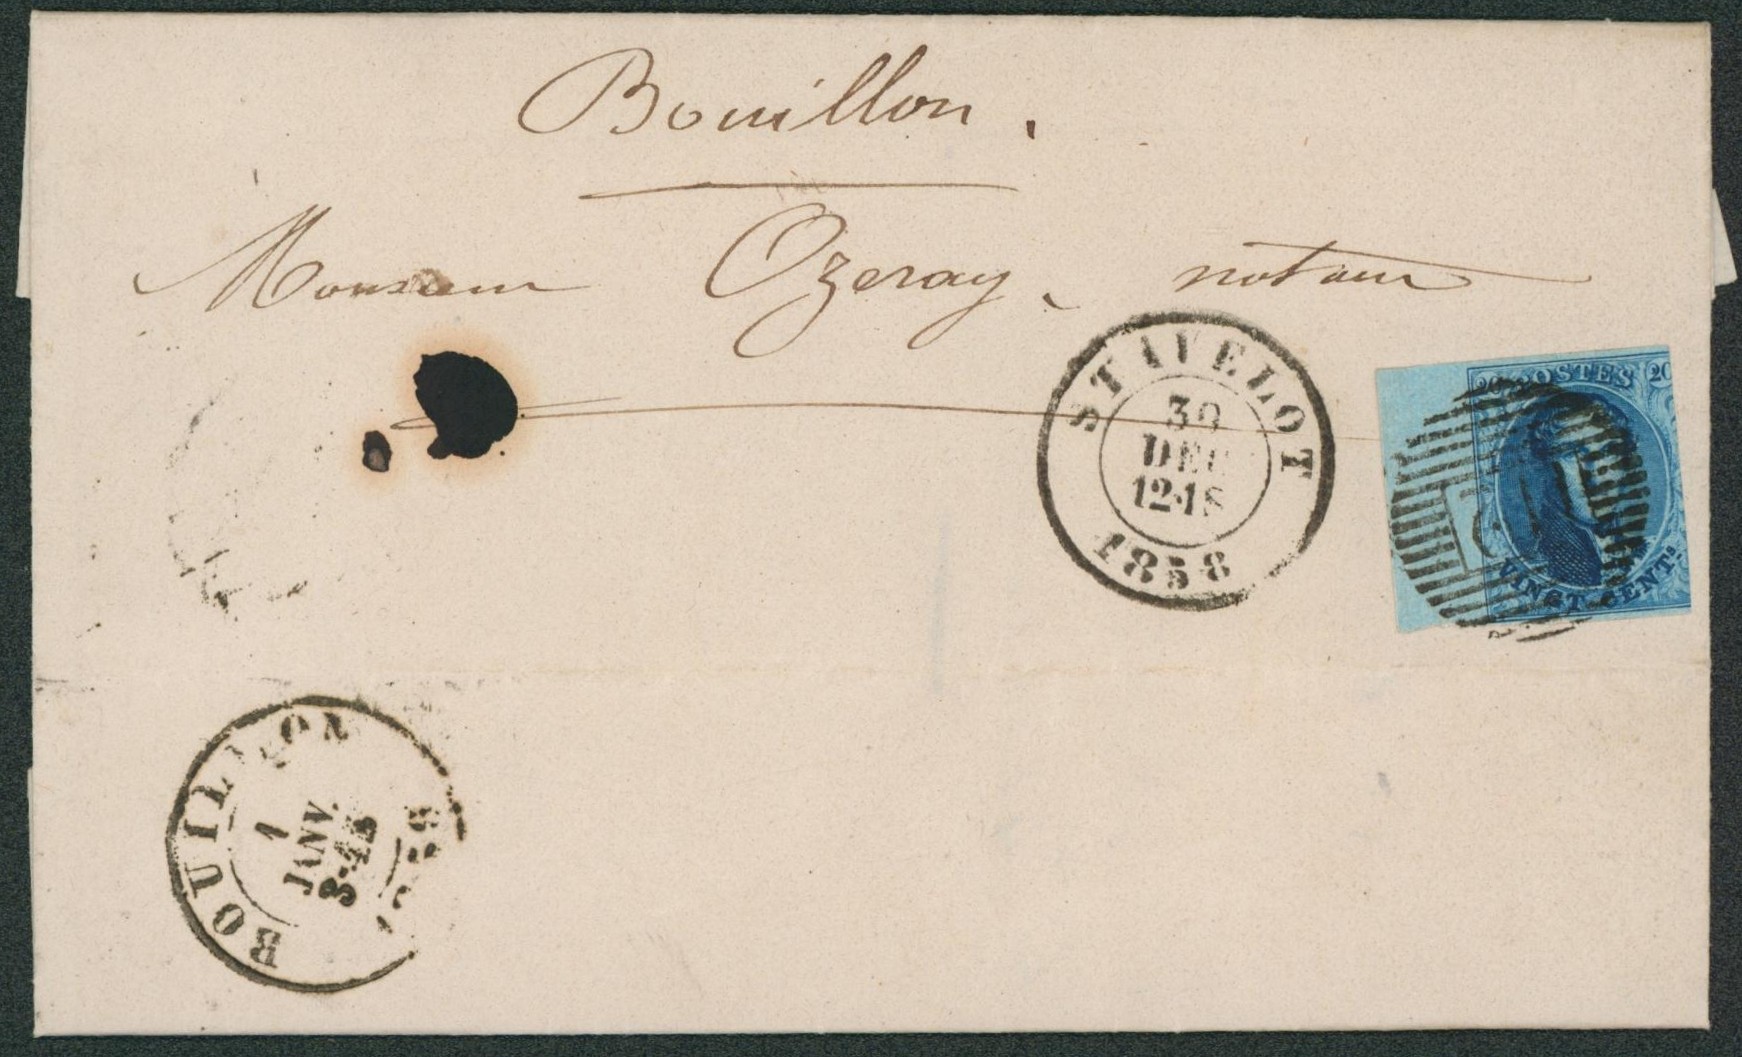 Bouillon.
Monsieur Ozeray, notaire
STAVELOT
30
DEC
12-1S
1858
20 POSTES 20
VINGT CENTS.
BOUILLON
1
JANV.
3-4S